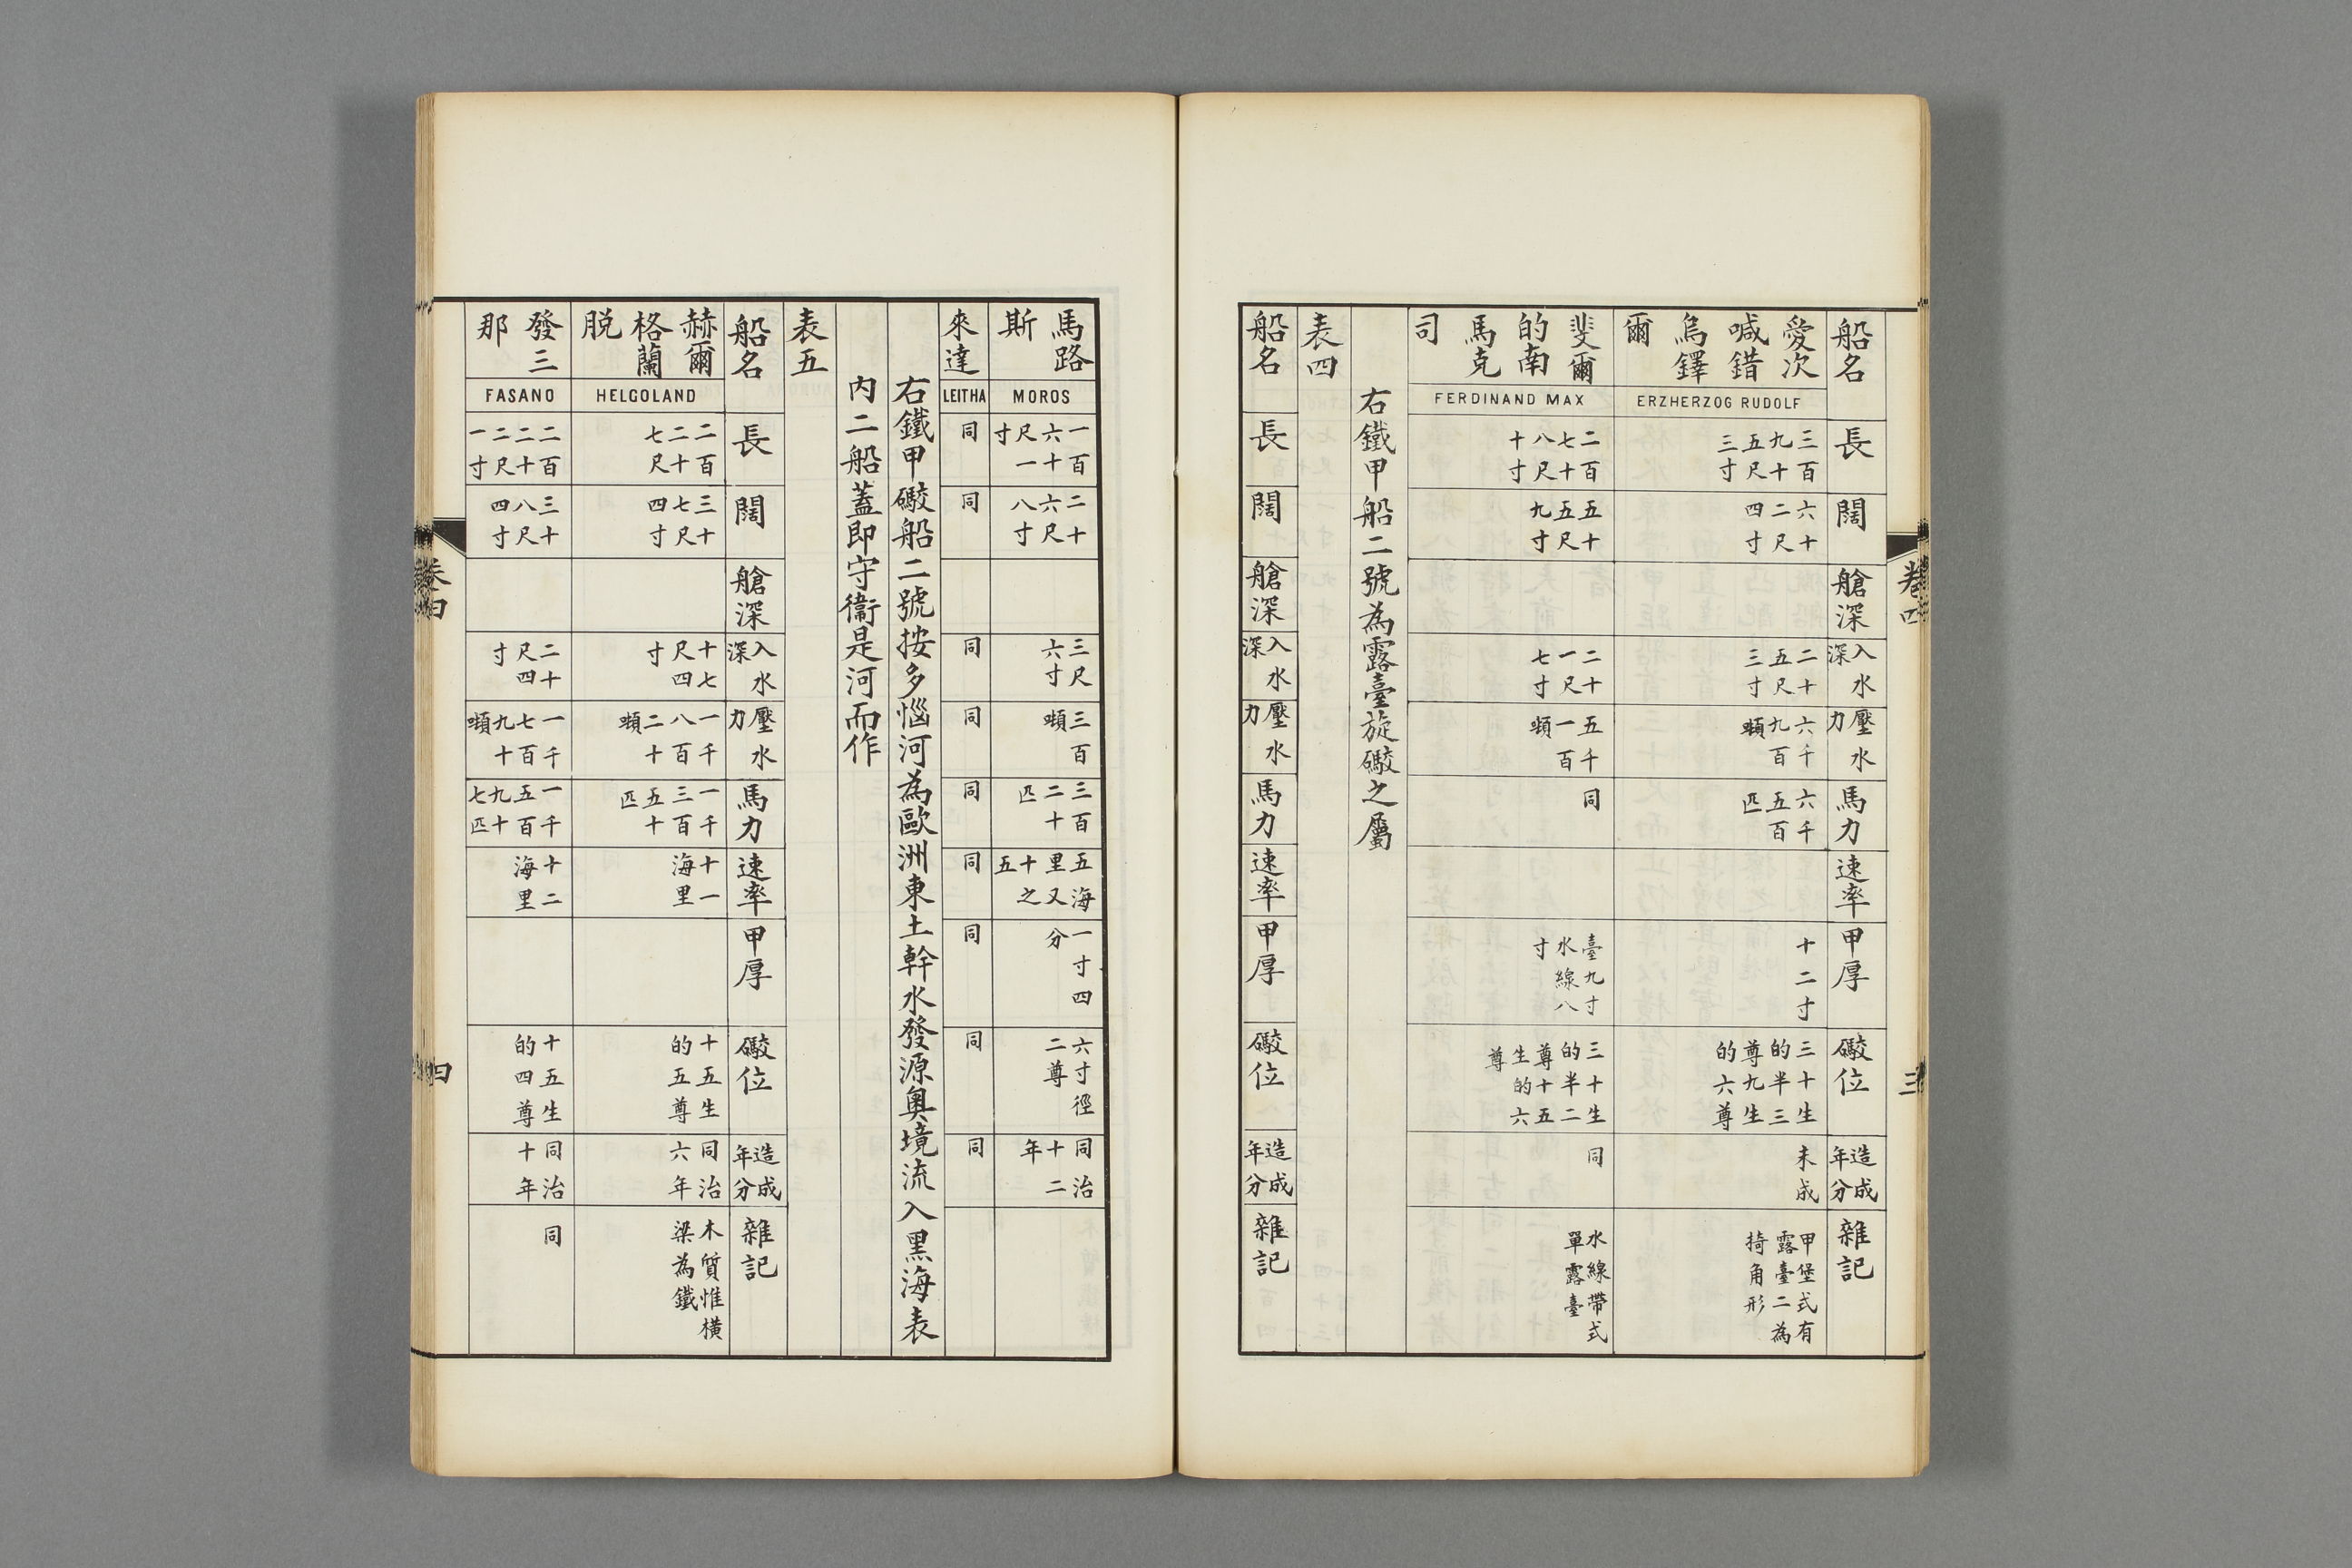 卷四
三
船名
長
闊
艙深
入水深
壓水力
馬力
速率
甲厚
礮位
造成年分
雜記
愛次喊錯烏鐸爾
ERZHERZOG RUDOLF
三百九十五尺三寸
六十二尺四寸
二十五尺三寸
六千九百噸
六千五百匹
十二寸
三十生的半三尊九生的六尊
未成
甲堡式有露臺二為掎角形
斐爾的南馬克司
FERDINAND MAX
二百七十八尺十寸
五十五尺九寸
二十一尺七寸
五千一百噸
同
臺九寸水線八寸
三十生的半二尊十五生的六尊
同
水線帶式單露臺
右鐵甲船二號為露臺旋礮之屬
表四
船名
長
闊
艙深
入水深
壓水力
馬力
速率
甲厚
礮位
造成年分
雜記
馬路斯
MOROS
一百六十尺一寸
二十六尺八寸
三尺六寸
三百噸
三百二十匹
五海里又十之五
一寸四分
六寸徑二尊
同治十二年
來達
LEITHA
同
同
同
同
同
同
同
同
同
右鐵甲礮船二號按多惱河為歐洲東土幹水發源奧境流入黑海表
內二船蓋即守衞是河而作
表五
船名
長
闊
艙深
入水深
壓水力
馬力
速率
甲厚
礮位
造成年分
雜記
赫爾格蘭脫
HELGOLAND
二百二十七尺
三十七尺四寸
十七尺四寸
一千八百二十噸
一千三百五十匹
十一海里
十五生的五尊
同治六年
木質惟橫梁為鐵
發三那
FASANO
二百二十二尺一寸
三十八尺四寸
二十尺四寸
一千七百九十噸
一千五百九十七匹
十二海里
十五生的四尊
同治十年
同
卷四
四